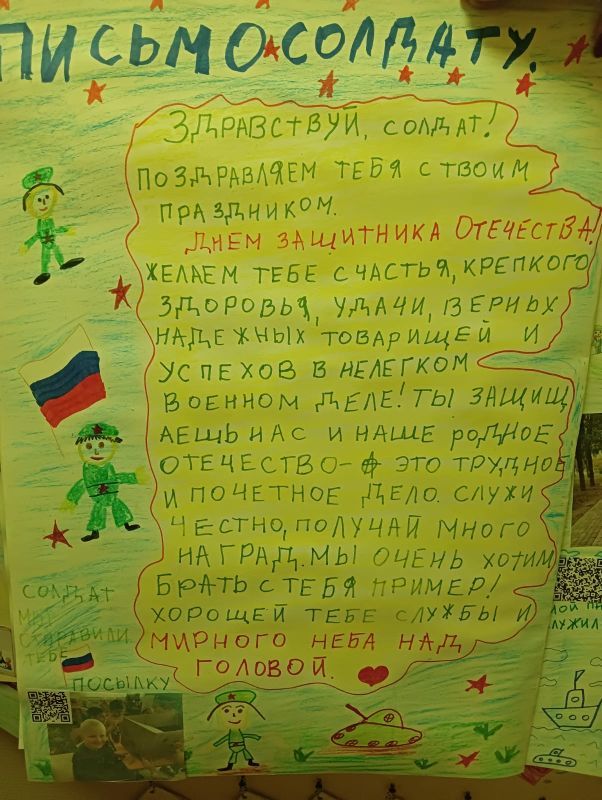 ПИСЬМО СОЛДАТУ.
ЗДРАВСТВУЙ, СОЛДАТ!
ПОЗДРАВЛЯЕМ ТЕБЯ С ТВОИМ
ПРАЗДНИКОМ.
ДНЕМ ЗАЩИТНИКА ОТЕЧЕСТВА!
ЖЕЛАЕМ ТЕБЕ СЧАСТЬЯ, КРЕПКОГО
ЗДОРОВЬЯ, УДАЧИ, ВЕРНЫХ
НАДЕЖНЫХ ТОВАРИЩЕЙ И
УСПЕХОВ В НЕЛЕГКОМ
ВОЕННОМ ДЕЛЕ! ТЫ ЗАЩИЩ
АЕШЬ НАС И НАШЕ РОДНОЕ
ОТЕЧЕСТВО- ЭТО ТРУДНОЕ
И ПОЧЕТНОЕ ДЕЛО. СЛУЖИ
ЧЕСТНО, ПОЛУЧАЙ МНОГО
НАГРАД. МЫ ОЧЕНЬ ХОТИМ
БРАТЬ С ТЕБЯ ПРИМЕР!
ХОРОЩЕЙ ТЕБЕ СЛУЖБЫ И
МИРНОГО НЕБА НАД
ГОЛОВОЙ.
СОЛДАТ
МЫ
ОТПРАВИЛИ
ТЕБЕ
ПОСЫЛКУ
МОЙ